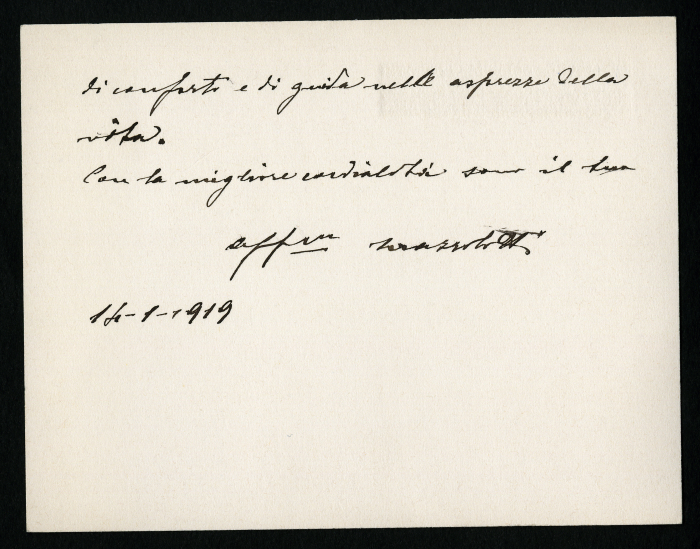 di conforto e di guida nelle asprezze della
vita.
Con la migliore cordialità sono il tuo
affmo
14-1-1919